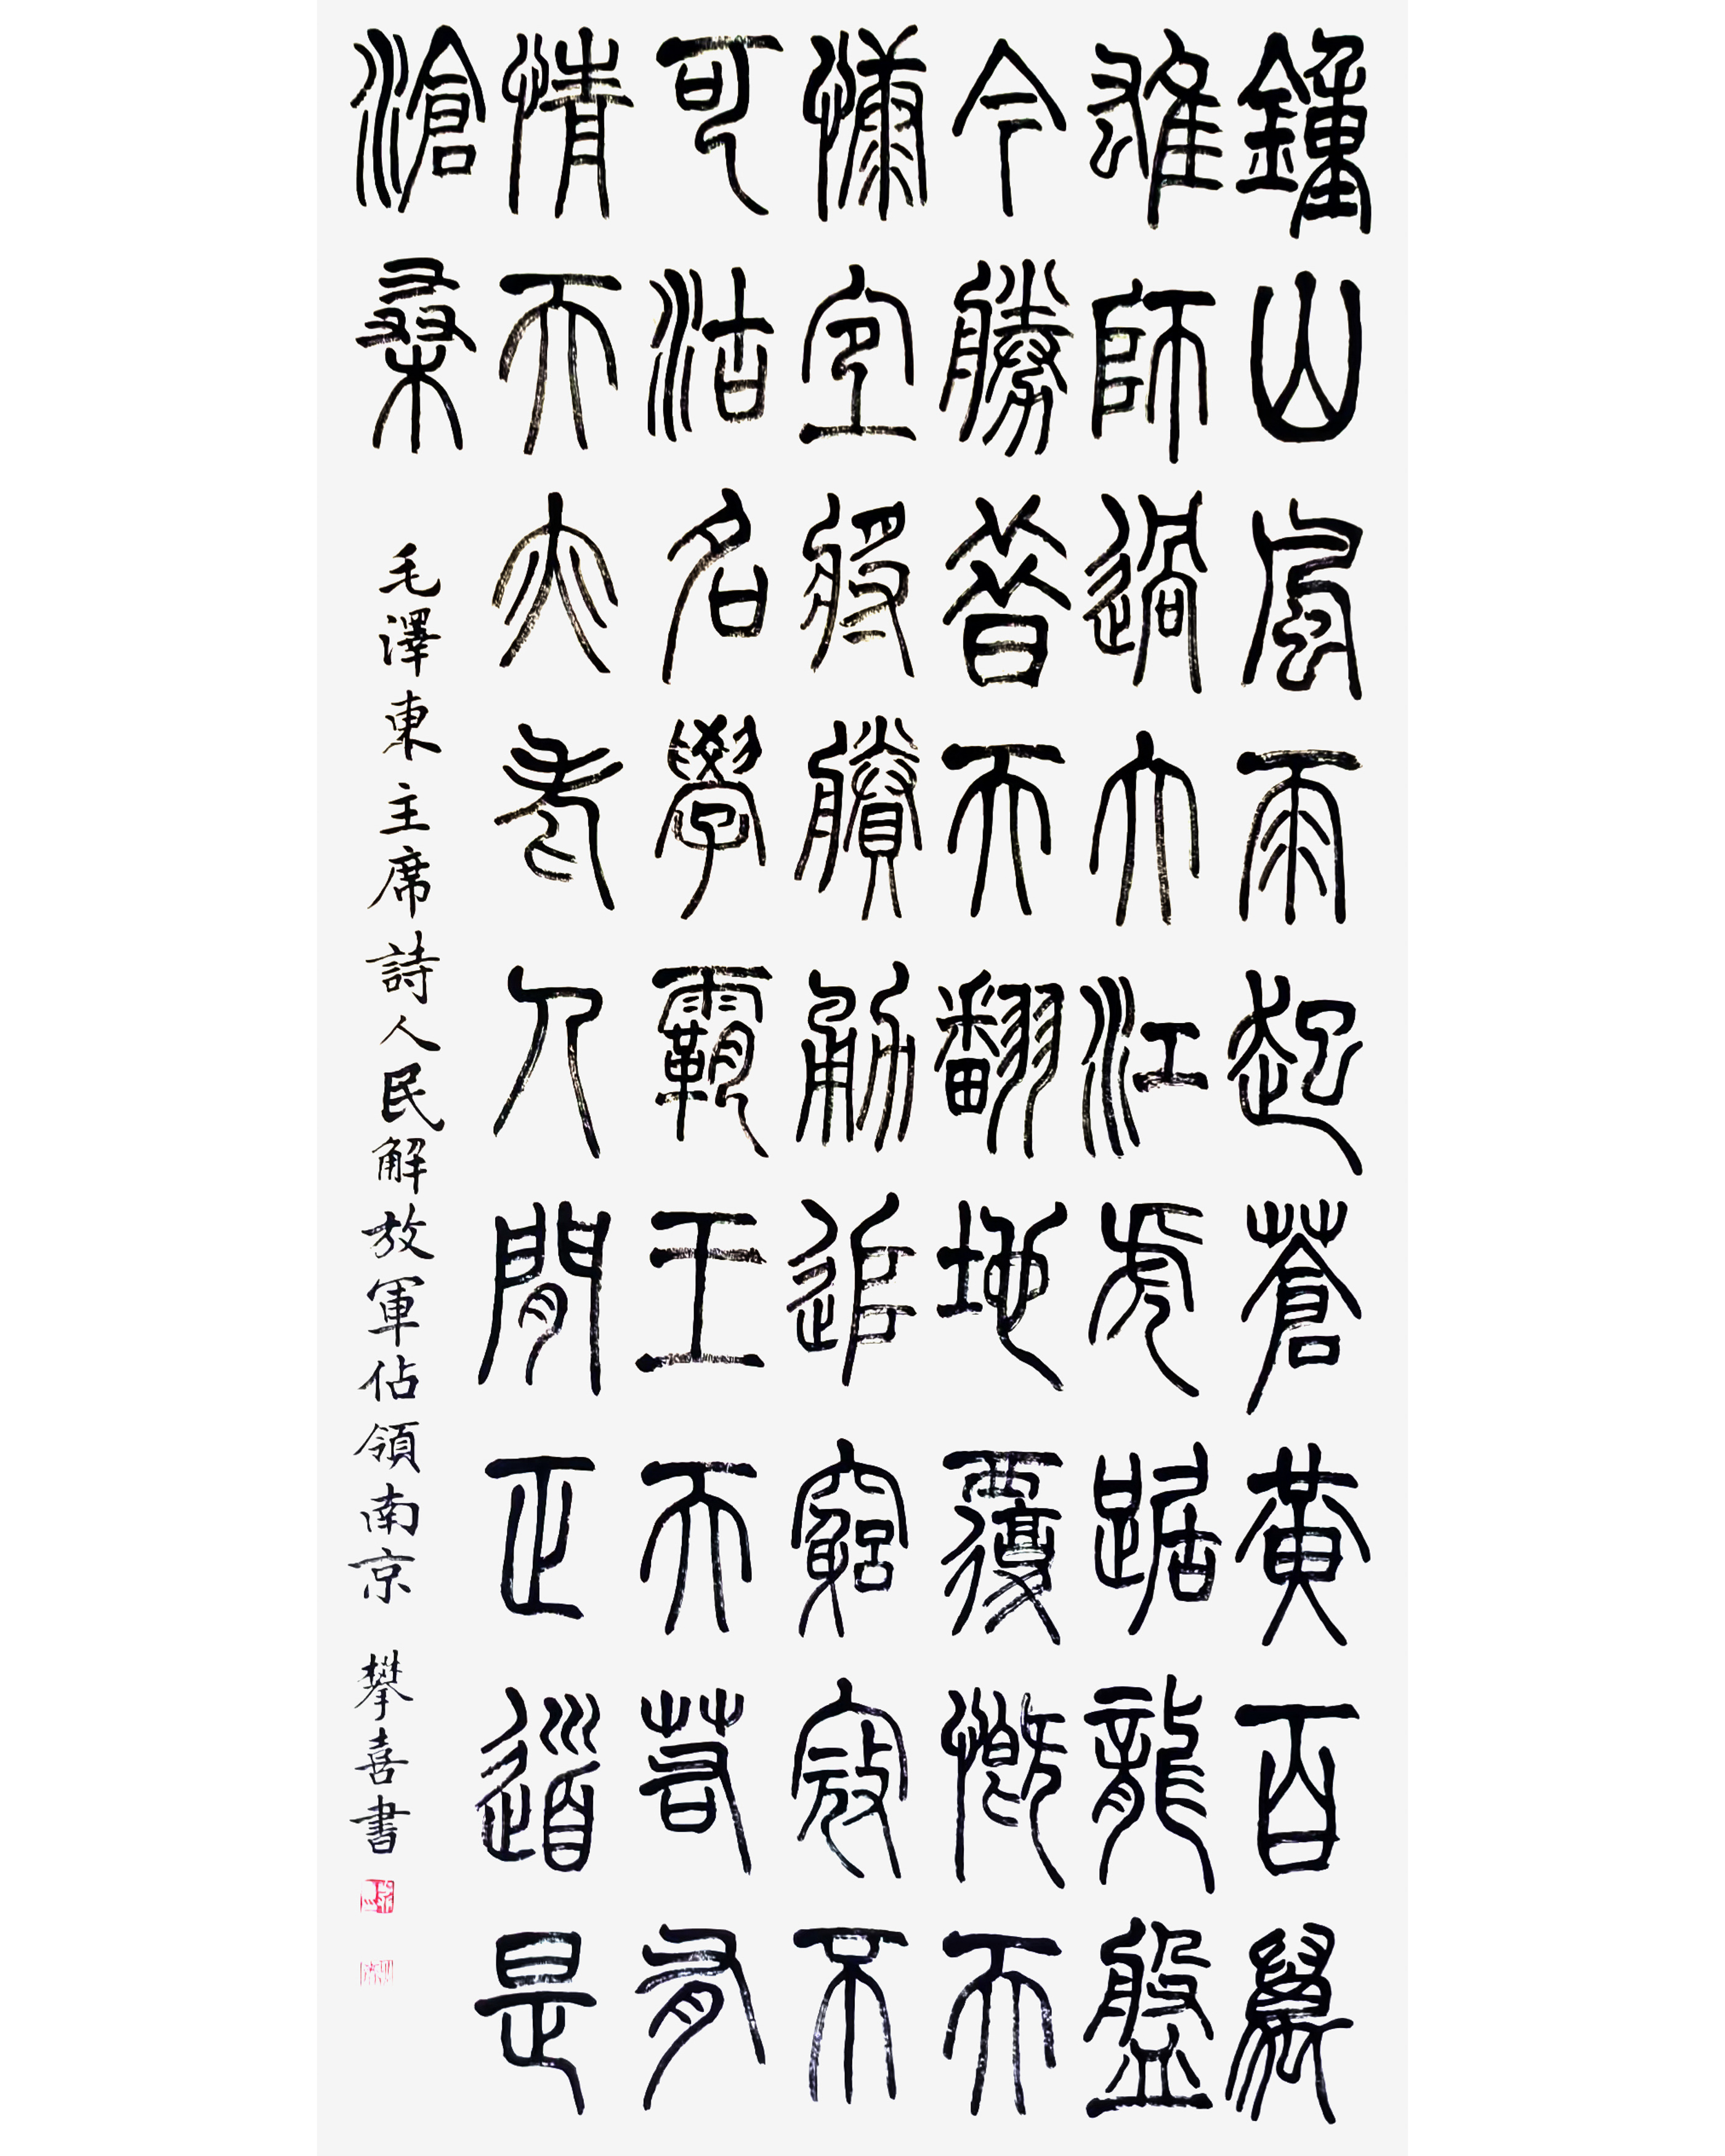 鍾山風雨起蒼黃百萬
雄師過大江虎踞龍盤
今勝昔天翻地覆慨而
慷宜將賸勇追窮寇不
可沽名學霸王天若有
情天亦老人間正道是
滄桑
毛澤東主席詩人民解放軍佔領南京 攀喜書